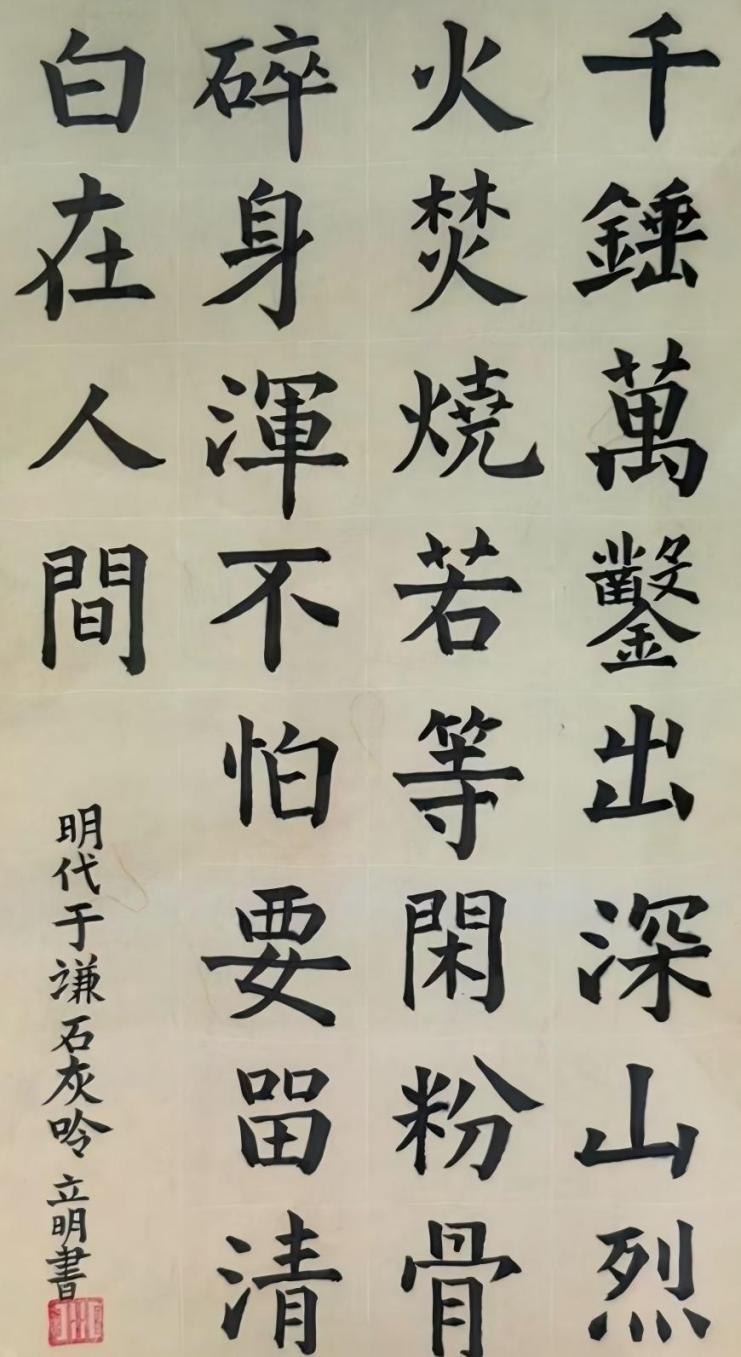 千錘萬鑿出深山烈
火焚燒若等閑粉骨
碎身渾不怕要畱清
白在人間
明代于謙石灰吟 立明書